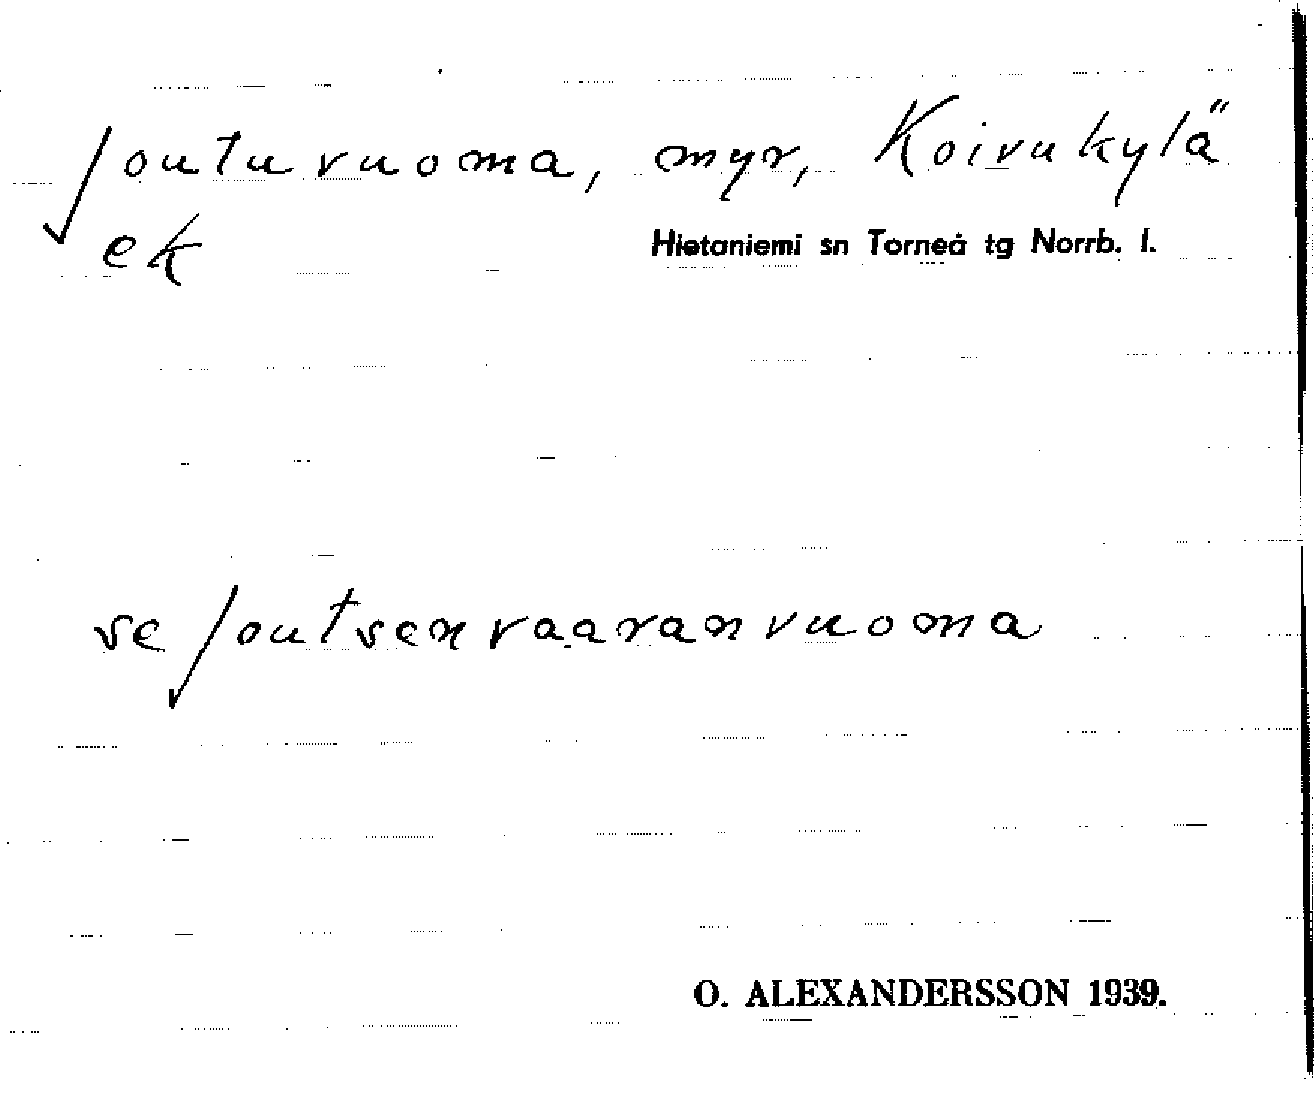 Joutuvuoma, myr, Koivukylä
ek
Hietaniemi sn Torneå tg Norrb. l.
se Joutsenvaaranvuoma
O. ALEXANDERSSON 1939.